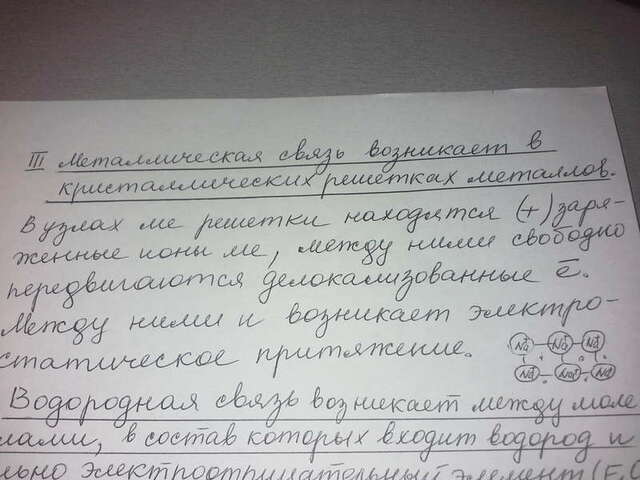 III Металлическая связь возникает в
кристаллических решетках металлов.
В узлах ме решетки находятся (+) заря-
женные ионы ме, между ними свободно
передвигаются делокализованные ē.
Между ними и возникает электро-
статическое притяжение.
Na Na Na
Na Na Na
Водородная связь возникает между моле
лами, в состав которых входит водород и
льно электроотрицательный элемент (F, O